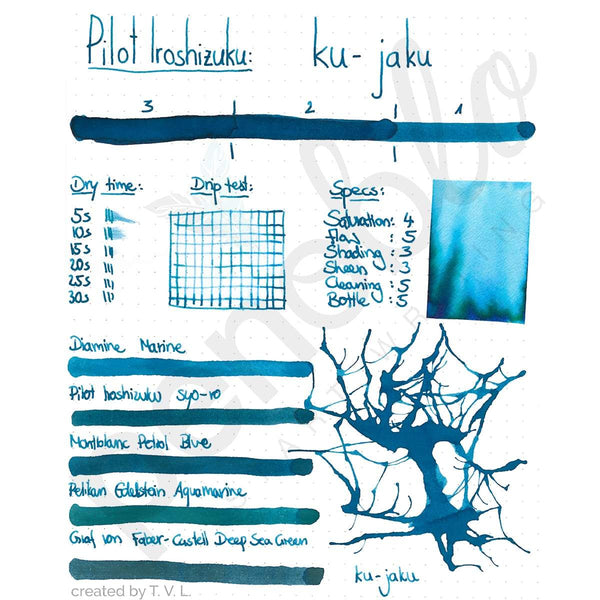 Pilot Iroshizuku: ku-jaku
3 2 1
Dry time: Drip test: Specs:
5s
10s
15s
20s
25s
30s
Saturation: 4
Flow : 5
Shading : 3
Sheen : 3
Cleaning : 5
Bottle : 5
Diamine Marine
Pilot Iroshizuku syo-ro
Montblanc Petrol Blue
Pelikan Edelstein Aquamarine
Graf von Faber-Castell Deep Sea Green
ku-jaku
created by T. V. L.